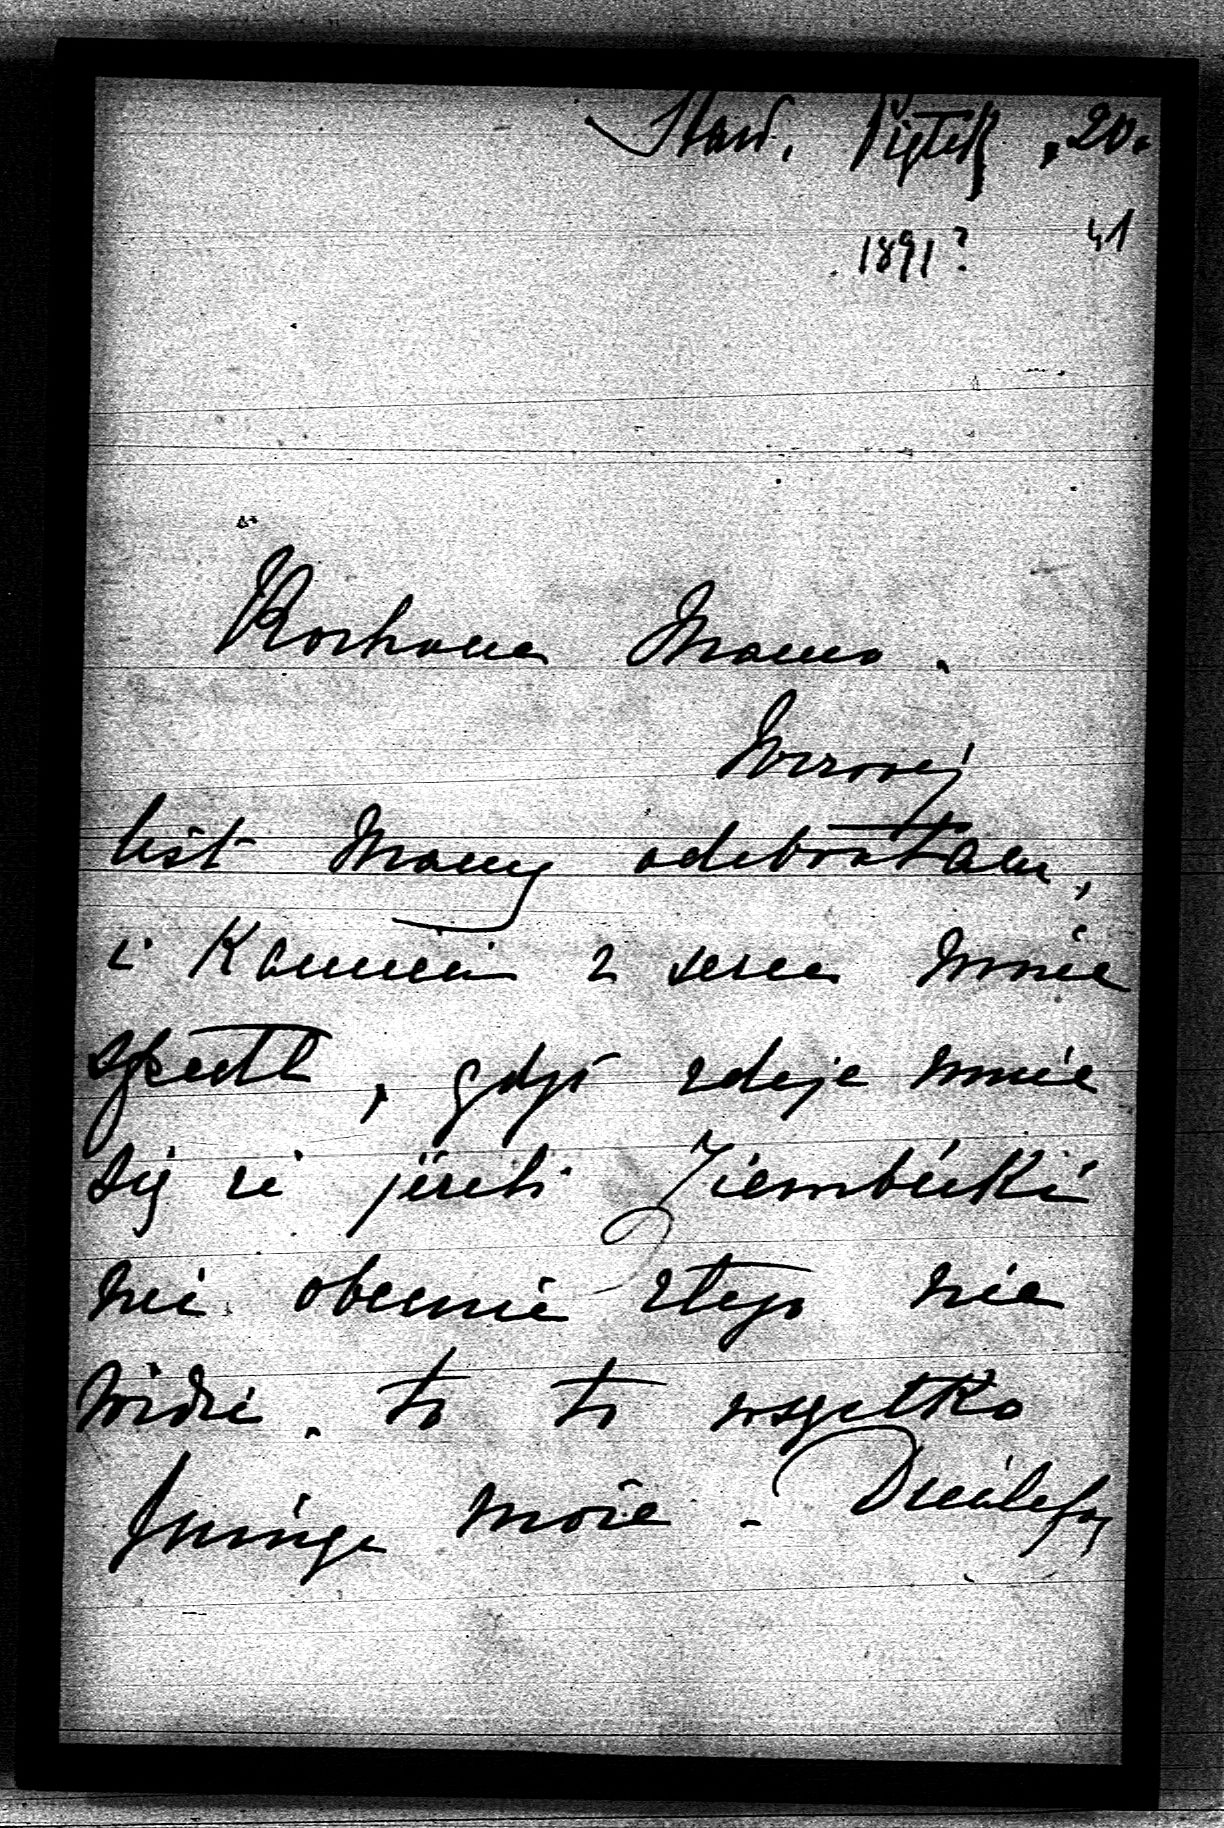 Staw. Piątek, 20.
1891? 41
Kochana Mamo.
Wczoraj
list Mamy odebrałam,
i Kamień z serca mnie
spadł, gdyż zdaje mnie
się że jeżeli Ziembicki
nic obecnie złego nie
widzi, to to wszystko
minąć może. Dzisiaj